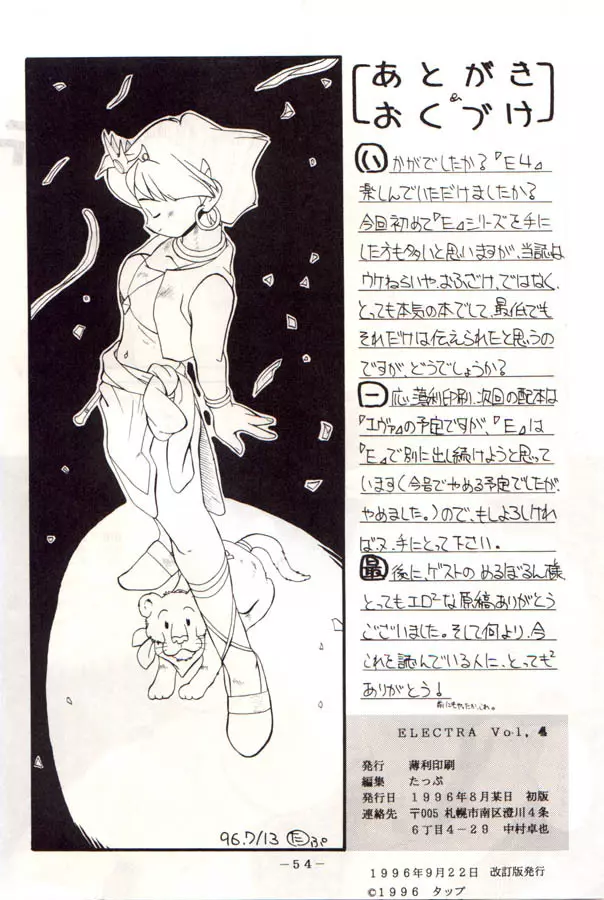 あとがき
&
おくづけ
いかがでしたかる『E4』
楽しんでいただけましたかる
今回初めて『E』シリーズを手に
した方も多いと思いますが、当誌は
ウケねらいや、おふざけ、ではなく、
とっても本気の本でして、最低でも
それだけは伝えられたと思うの
ですが、どうでしょうかる
一応、薄利印刷、次回の配本は
『エヴァ』の予定ですが、『E』は
『E』で別に出し続けようと思って
います(今号でやめる予定でしたが、
やめました。)ので、もしよろしけれ
ばヌ、手にとって下さい。
最後に、ゲストの めるぼるん様、
とってもエロ²な原稿、ありがとう
ございました。そして何より、今
これを読んでいる人に、とっても²
ありがとう!
前にもやったか、これ。
ELECTRA Vol, 4
発行 薄利印刷
編集 たっぷ
発行日 1996年8月某日 初版
連絡先 〒005 札幌市南区澄川4条
6丁目4-29 中村卓也
96.7/13 たっぷ
-54-
1996年9月22日 改訂版発行
©1996 タップ